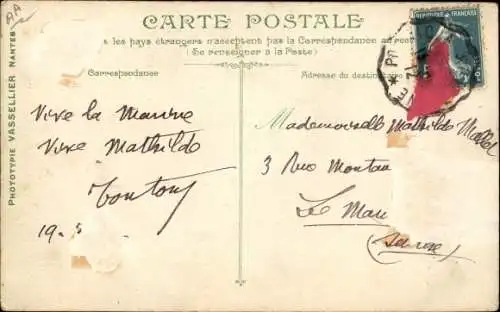 AA
CARTE POSTALE
s les pays étrangers n'acceptent pas la Correspondance au recto
(Se renseigner à la Poste)
Correspondance
Adresse du destinataire
PHOTOTYPIE VASSELLIER NANTES
RÉPUBLIQUE FRANÇAISE
Vive la Marine
Vive Mathilde
Tontons
19.
Mademoiselle Mathilde
3 Rue Montau
Le Mans
(Sarthe)